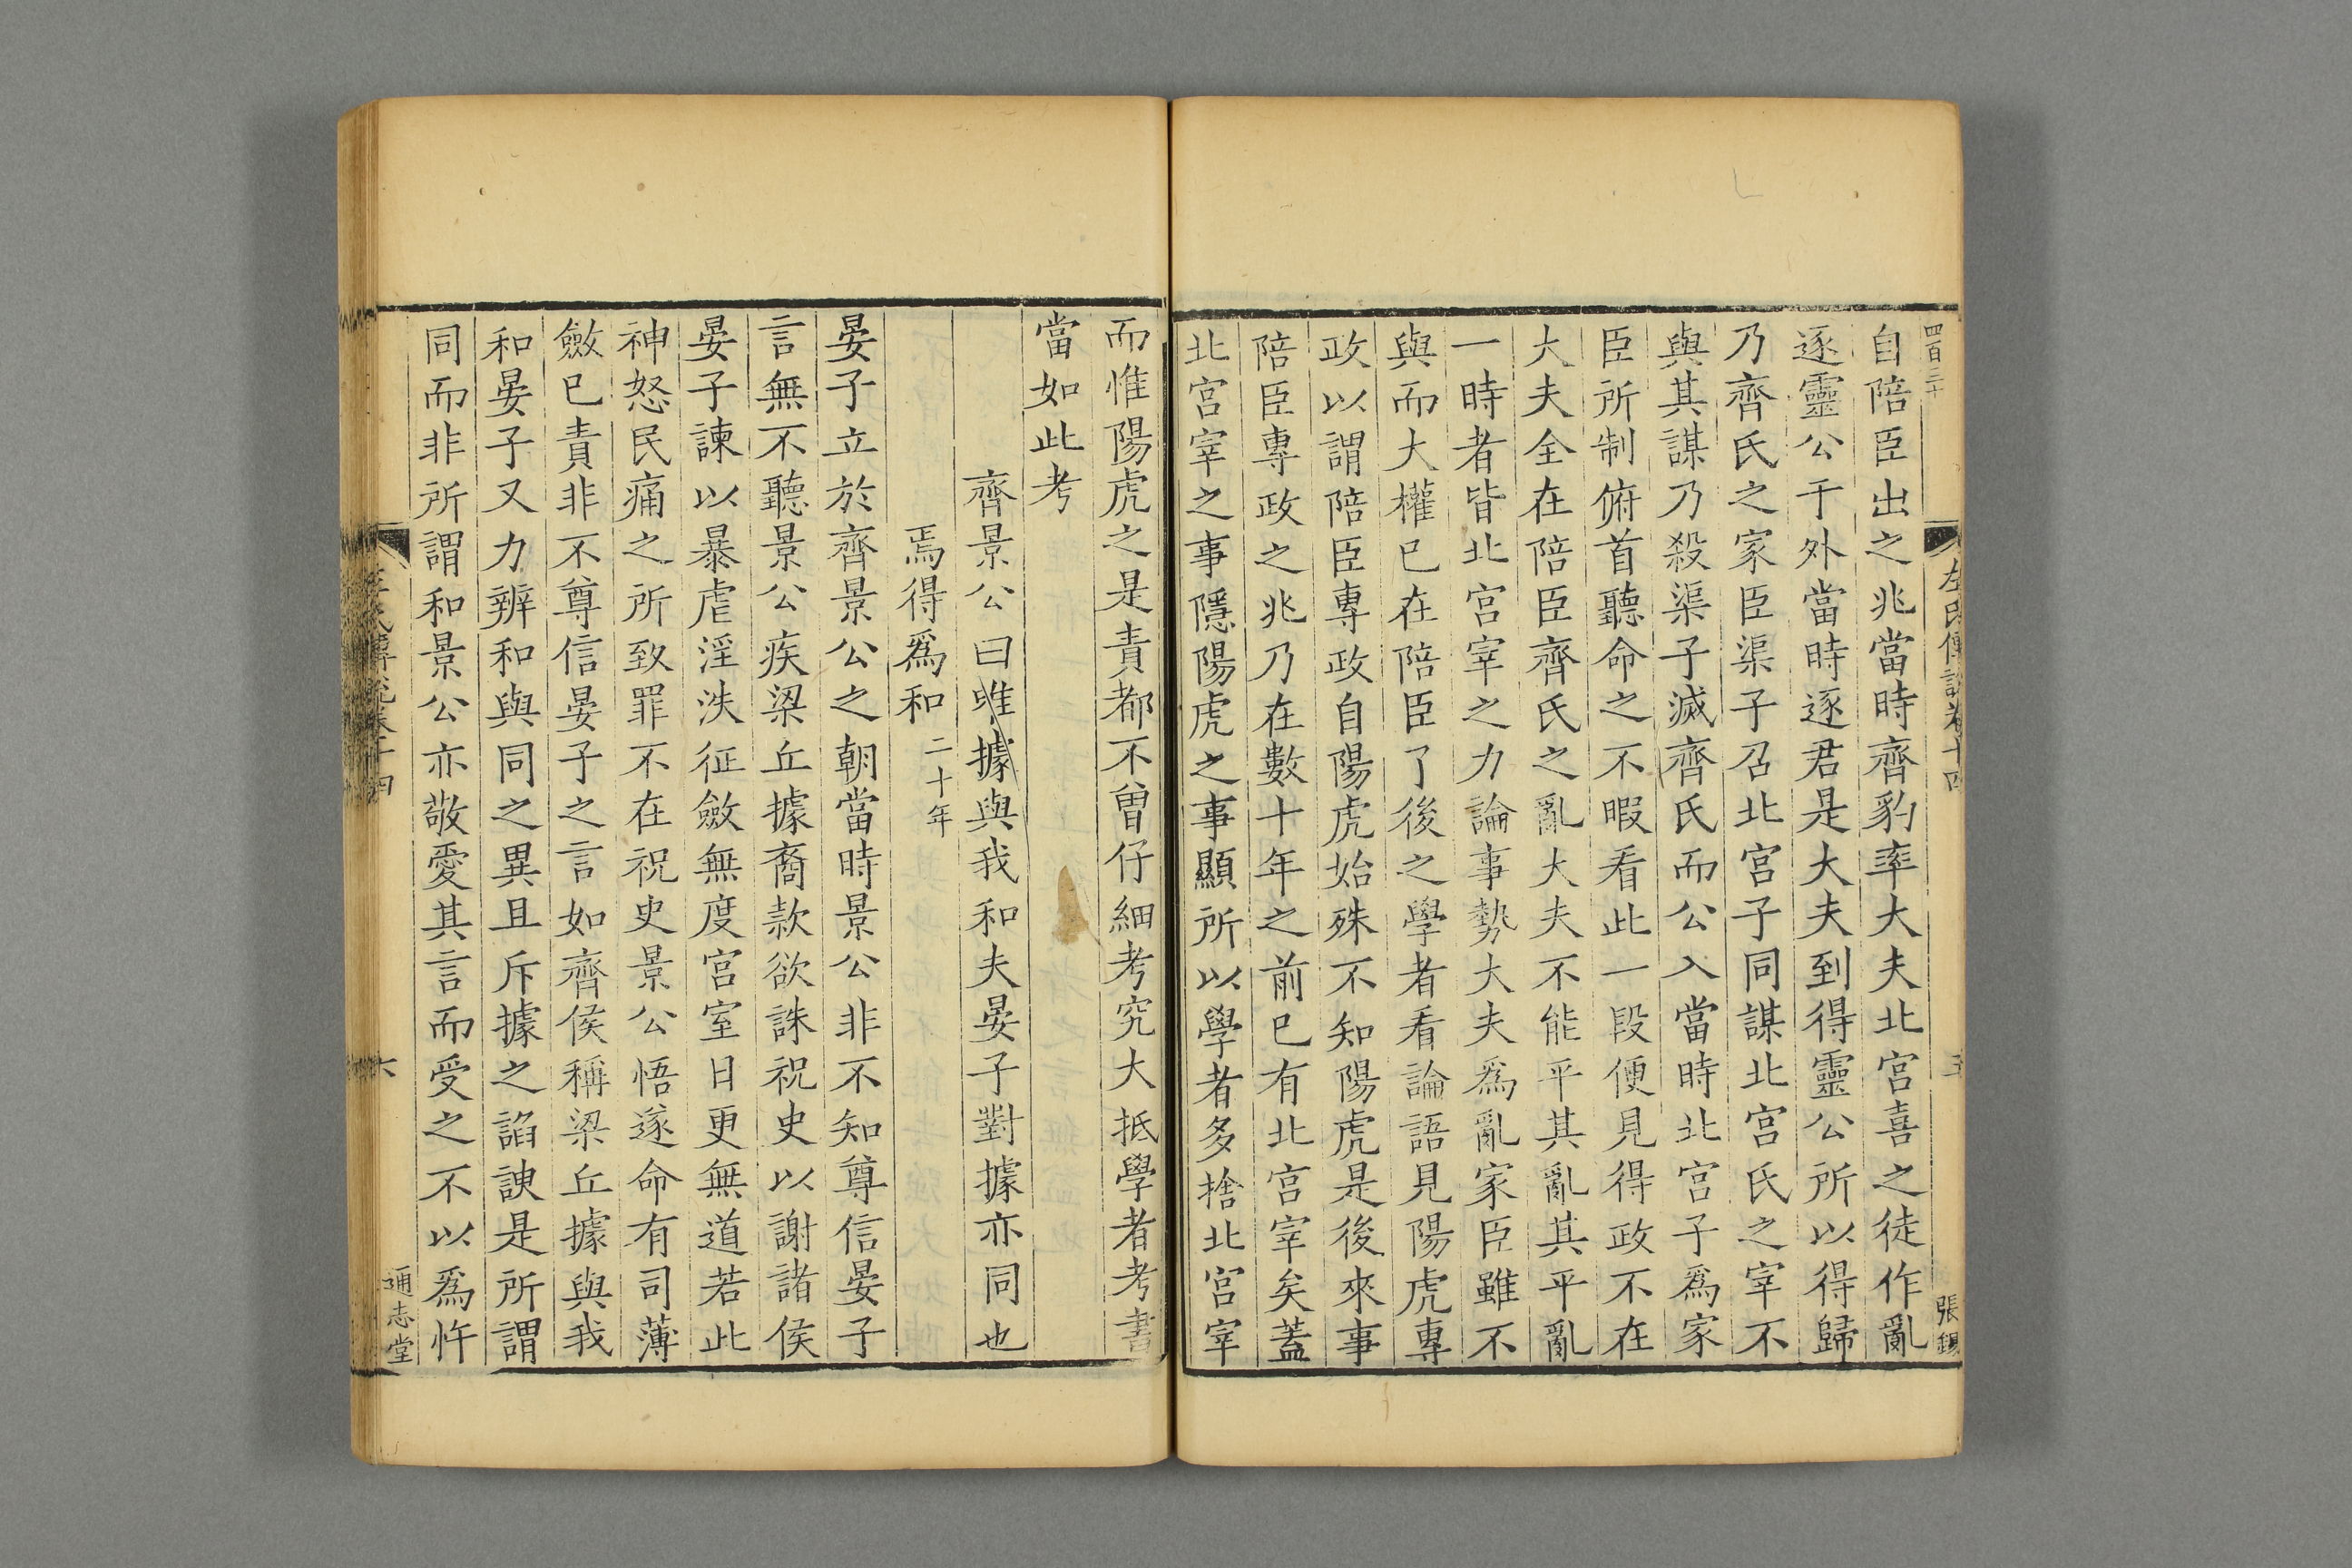 四百三十
左氏傳說卷十四
五
張錫
自陪臣出之兆當時齊豹率大夫北宮喜之徒作亂
逐靈公于外當時逐君是大夫到得靈公所以得歸
乃齊氏之家臣渠子召北宮子同謀北宮氏之宰不
與其謀乃殺渠子滅齊氏而公入當時北宮子爲家
臣所制俯首聽命之不暇看此一段便見得政不在
大夫全在陪臣齊氏之亂大夫不能平其亂其平亂
一時者皆北宮宰之力論事勢大夫爲亂家臣雖不
與而大權已在陪臣了後之學者看論語見陽虎專
政以謂陪臣專政自陽虎始殊不知陽虎是後來事
陪臣專政之兆乃在數十年之前已有北宮宰矣蓋
北宮宰之事隱陽虎之事顯所以學者多捨北宮宰
而惟陽虎之是責都不曽仔細考究大抵學者考書
當如此考
齊景公曰唯據與我和夫晏子對據亦同也
焉得爲和二十年
晏子立於齊景公之朝當時景公非不知尊信晏子
言無不聽景公疾梁丘據裔款欲誅祝史以謝諸侯
晏子諫以暴虐淫泆征斂無度宮室日更無道若此
神怒民痛之所致罪不在祝史景公悟遂命有司薄
斂已責非不尊信晏子之言如齊侯稱梁丘據與我
和晏子又力辨和與同之異且斥據之諂諛是所謂
同而非所謂和景公亦敬愛其言而受之不以爲忤
左氏傳說卷十四
六
通志堂